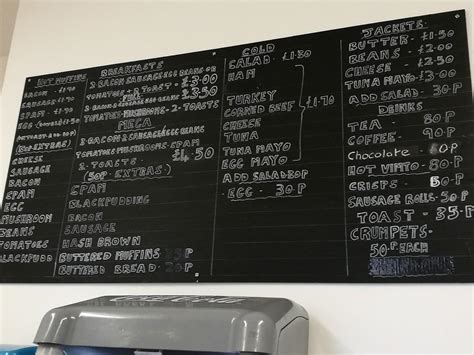 HOT MUFFINS
BACON £1.70
SAUSAGE £1.70
SPAM £1.70
EGG
CHEESE
SAUSAGE
BACON
SPAM
EGG
MUSHROOM
BEANS
TOMATOES
BLACKPUDD
BREAKFASTS
2 BACON SAUSAGE EGG BEANS OR
TOMATOES - 2 TOAST - £3.00
2 BACON SAUSAGE EGG BEANS £3.50
TOMATOES MUSHROOMS - 2 - TOASTS
MEGA
2 BACON SAUSAGE EGG BEANS
TOMATOES MUSHROOMS SPAM
2 - TOASTS £4.50
(50P EXTRAS)
SPAM
BLACKPUDDING
BACON
SAUSAGE
HASH BROWN
BUTTERED MUFFINS 35P
BUTTERED BREAD - 20P
COLD
SALAD - £1.30
HAM
TURKEY
CORNED BEEF £1.70
CHEESE
TUNA
TUNA MAYO
EGG MAYO
ADD SALAD 30P
EGG - 30P
JACKETS
BUTTER - £1.50
BEANS - £2.00
CHEESE - £2.50
TUNA MAYO - £3.00
ADD SALAD - 30P
DRINKS
TEA - 80P
COFFEE - 90P
Chocolate
HOT VIMTO 80P
CRISPS - 50P
SAUSAGE ROLLS - 30P
TOAST - 35P
CRUMPETS -
50P EACH